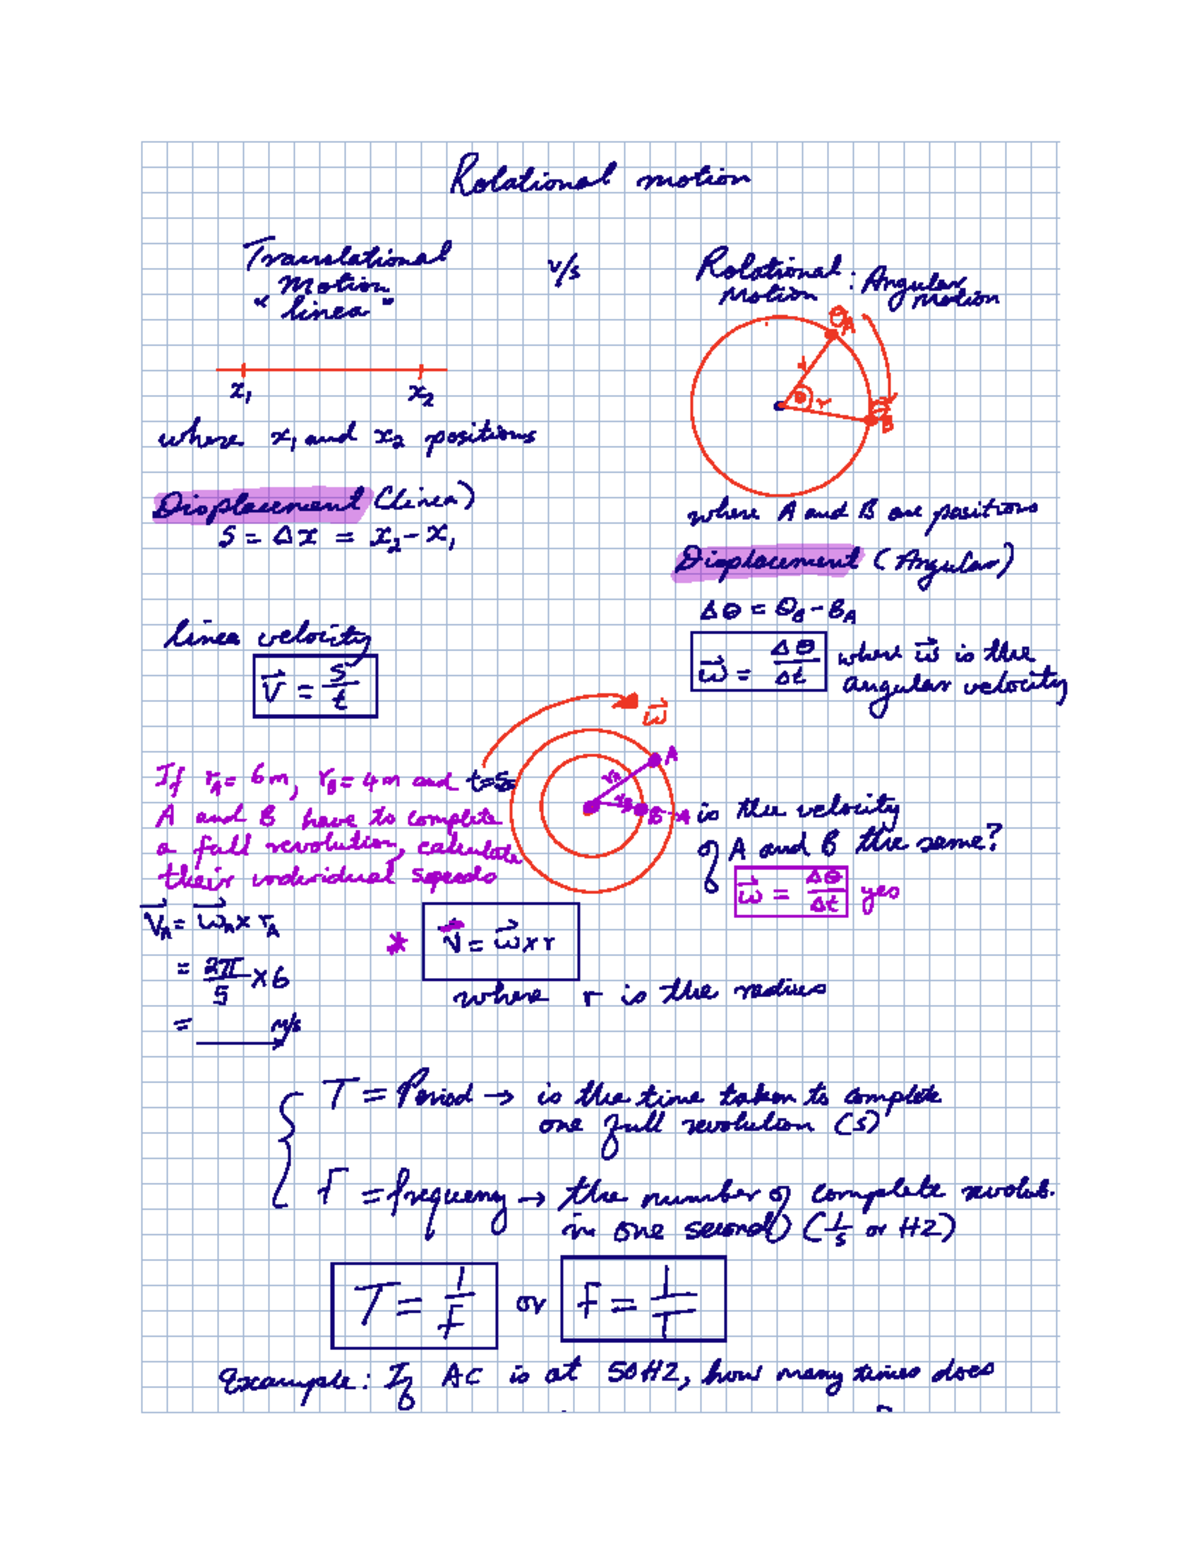 Rotational motion
Translational
Motion
"linea"
v/s
Rotational : Angular
Motion motion
θA
r
θ r
θB
x₁ x₂
where x₁ and x₂ positions
Displacement (linea)
S = Δx = x₂ - x₁
where A and B are positions
Displacement (Angular)
Δθ = θB - θA
ω⃗ = Δθ/Δt where ω⃗ is the
angular velocity
linea velocity
V⃗ = S/t
ω⃗
If rA = 6m, rB = 4m and t=5s
A and B have to complete
a full revolution, calculate
their individual speeds
A
rA
rB B A
is the velocity
of A and B the same?
ω⃗ = Δθ/Δt yes
V⃗A = ω⃗A x rA
= 2π/5 x 6
= m/s
* V⃗ = ω⃗ x r
where r is the radius
T = Period → is the time taken to complete
one full revolution (s)
F = frequency → the number of complete revolut.
in one second (1/s or HZ)
T = 1/F or F = 1/T
Example: If AC is at 50HZ, how many times does